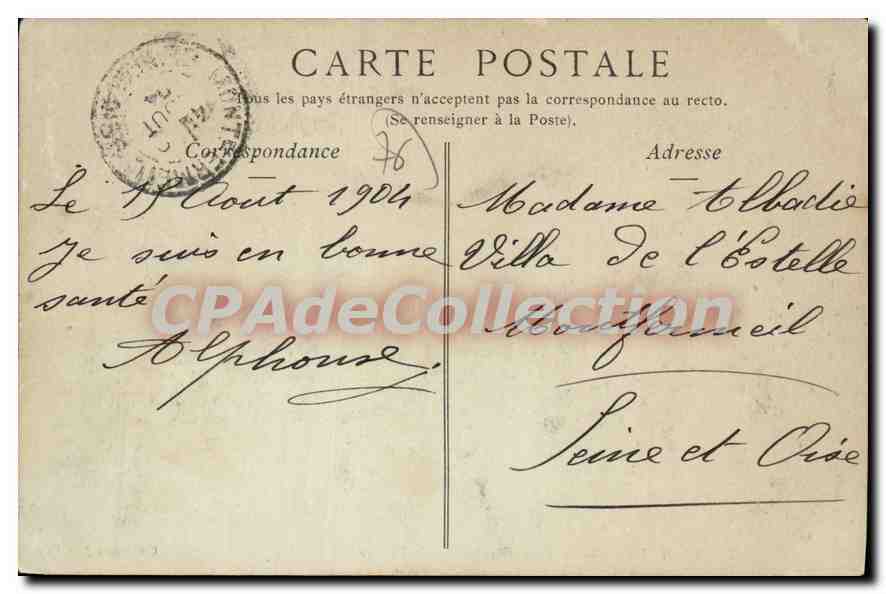 CARTE POSTALE
Tous les pays étrangers n'acceptent pas la correspondance au recto.
(Se renseigner à la Poste).
Correspondance
76
Le 15 Août 1904
Je suis en bonne
santé
Alphonse
Adresse
Madame Abbadie
Villa de l'Estelle
Montfermeil
Seine et Oise
CPAdeCollection.com